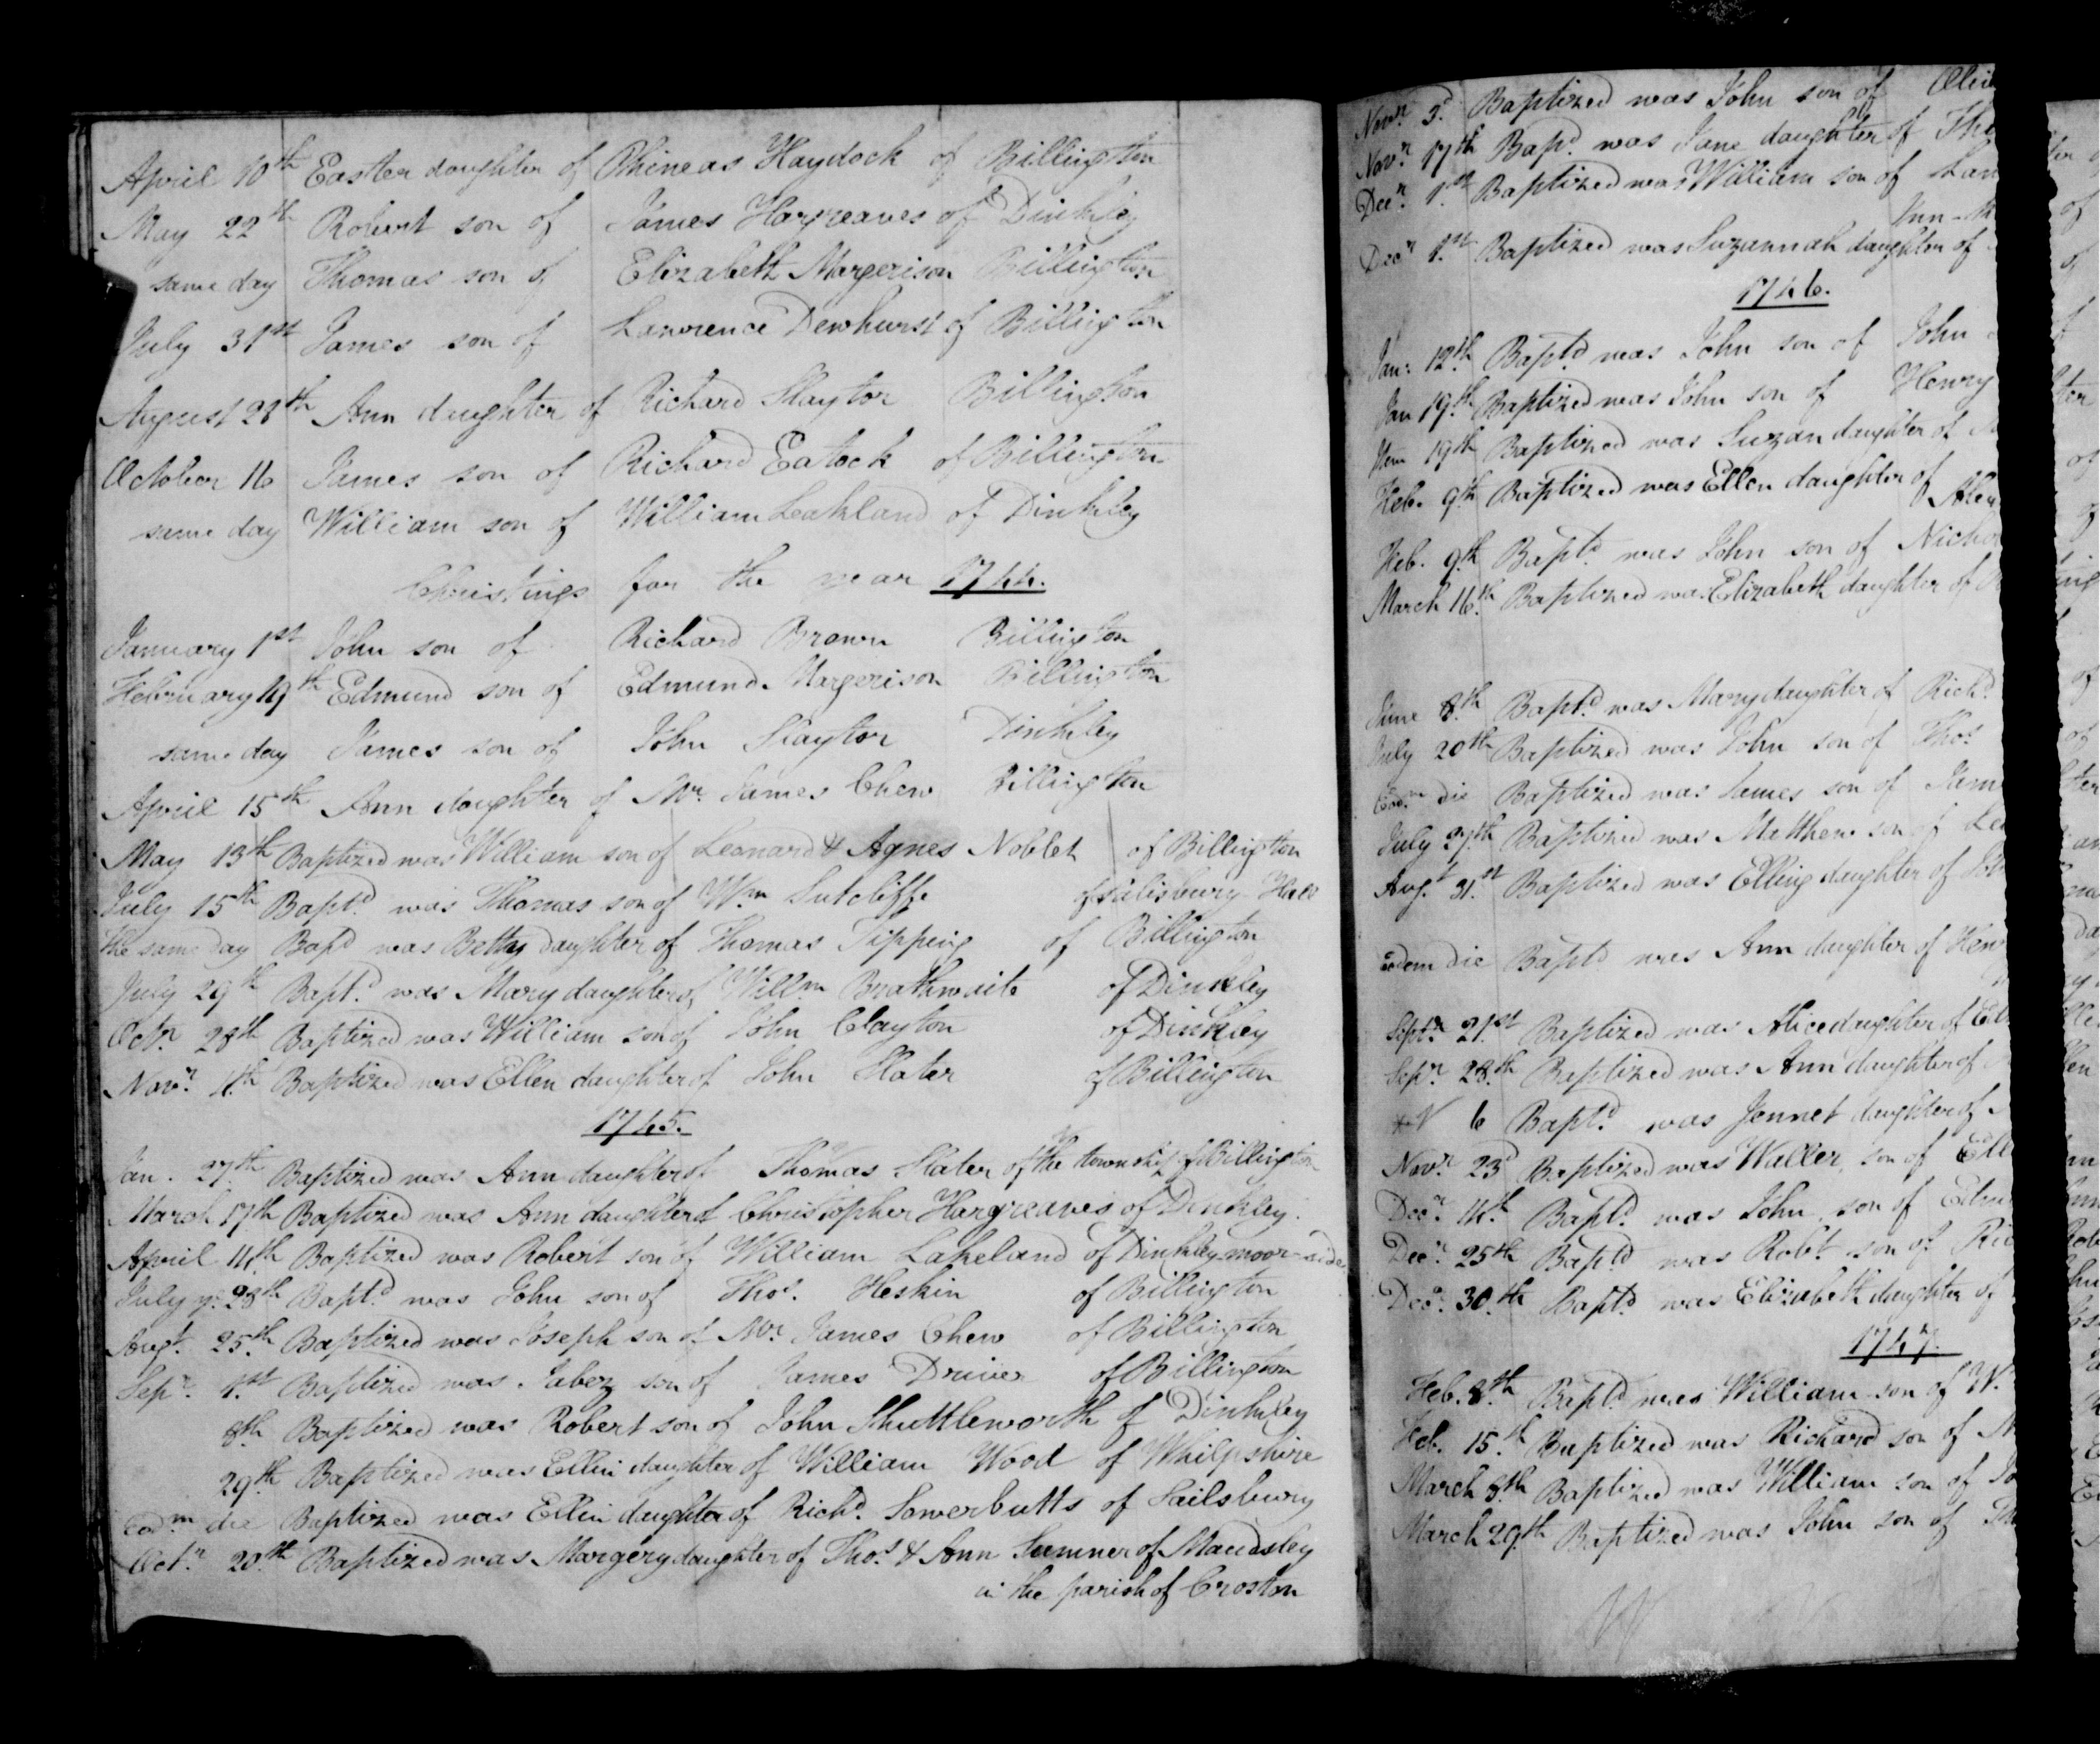 April 10th Easter daughter of Phineas Haydock of Billington
May 22th Robert son of James Hargreaves of Dinkley
same day Thomas son of Elizabeth Margerison Billington
July 31st James son of Lawrence Dewhurst of Billington
August 28th Ann daughter of Richard Slaytor Billington
October 16 James son of Richard Eatock of Billington
same day William son of William Leakland of Dinkley
Christings for the year 1744.
January 1st John son of Richard Brown Billington
February 19th Edmund son of Edmund Margerison Billington
same day James son of John Slaytor Dinkley
April 15th Ann daughter of Mr. James Chew Billington
May 13th Baptized was William son of Leonard & Agnes Noblet of Billington
July 15th Bapt.d was Thomas son of Wm Sutcliffe of Salisbury Hall
The same day Bapd was Betty daughter of Thomas Tipping of Billington
July 29th Bapt.d was Mary daughter of Willm Brathwaite of Dinkley
Octr. 28th Baptized was William son of John Clayton of Dinkley
Novr. 11th Baptized was Ellen daughter of John Slater of Billington
1745.
Jan. 27th Baptized was Ann daughter of Thomas Slater of the township of Billington
March 17th Baptized was Ann daughter of Christopher Hargreaves of Dinkley.
April 14th Baptized was Robert son of William Lakeland of Dinkley moor-side
July ye 28th Bapt.d was John son of Thos. Heskin of Billington
Augt. 25th Baptized was Joseph son of Mr. James Chew of Billington
Sepr. 1st Baptized was Jabez son of James Driver of Billington
8th Baptized was Robert son of John Shuttleworth of Dinkley
29th Baptized was Ellin daughter of William Wood of Whilpshire
Eodm die Baptized was Ellin daughter of Richd. Sowerbutts of Sailsbury
Octr. 20th Baptized was Margery daughter of Thos. & Ann Sumner of Maudsley
in the parish of Croston
Novr. 3d Baptized was John son of
Novr. 17th Bapd. was Jane daughter of
Decr. 1st Baptized was William son of
Decr. 1st Baptized was Suzannah daughter of
1746.
Jan: 12th Baptd was John son of John
Jan 19th Baptized was John son of Henry
19th Baptized was Suzan daughter of
Feb. 9th Baptized was Ellen daughter of
Feb. 9th Baptd was John son of
March 16th Baptized was Elizabeth daughter of
June 8th Baptd was Mary daughter of Richd.
July 20th Baptized was John son of Thos
Eodm die Baptized was James son of
July 27th Baptized was Matthew son of
Augt 31st Baptized was Elling daughter of
eodem die Baptd was Ann daughter of
Septr 21st Baptized was Alice daughter of
Sepr. 28th Baptized was Ann daughter of
6 Baptd. was Jennet daughter of
Novr. 23d Baptized was Waller son of
Decr. 14th Baptd was John son of
Decr. 25th Baptd was Robt. son of
Decr. 30th Baptd was Elizabeth daughter of
1747.
Feb. 8th Baptd was William son of
Feb. 15th Baptized was Richard son of
March 8th Baptized was William son of
March 29th Baptized was John son of